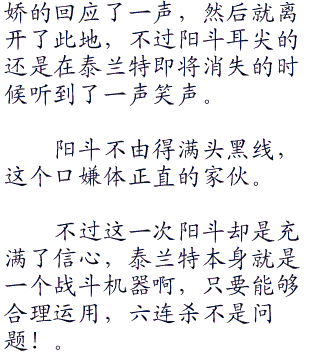 娇的回应了一声，然后就离
开了此地，不过阳斗耳尖的
还是在泰兰特即将消失的时
候听到了一声笑声。
阳斗不由得满头黑线，
这个口嫌体正直的家伙。
不过这一次阳斗却是充
满了信心，泰兰特本身就是
一个战斗机器啊，只要能够
合理运用，六连杀不是问
题！。